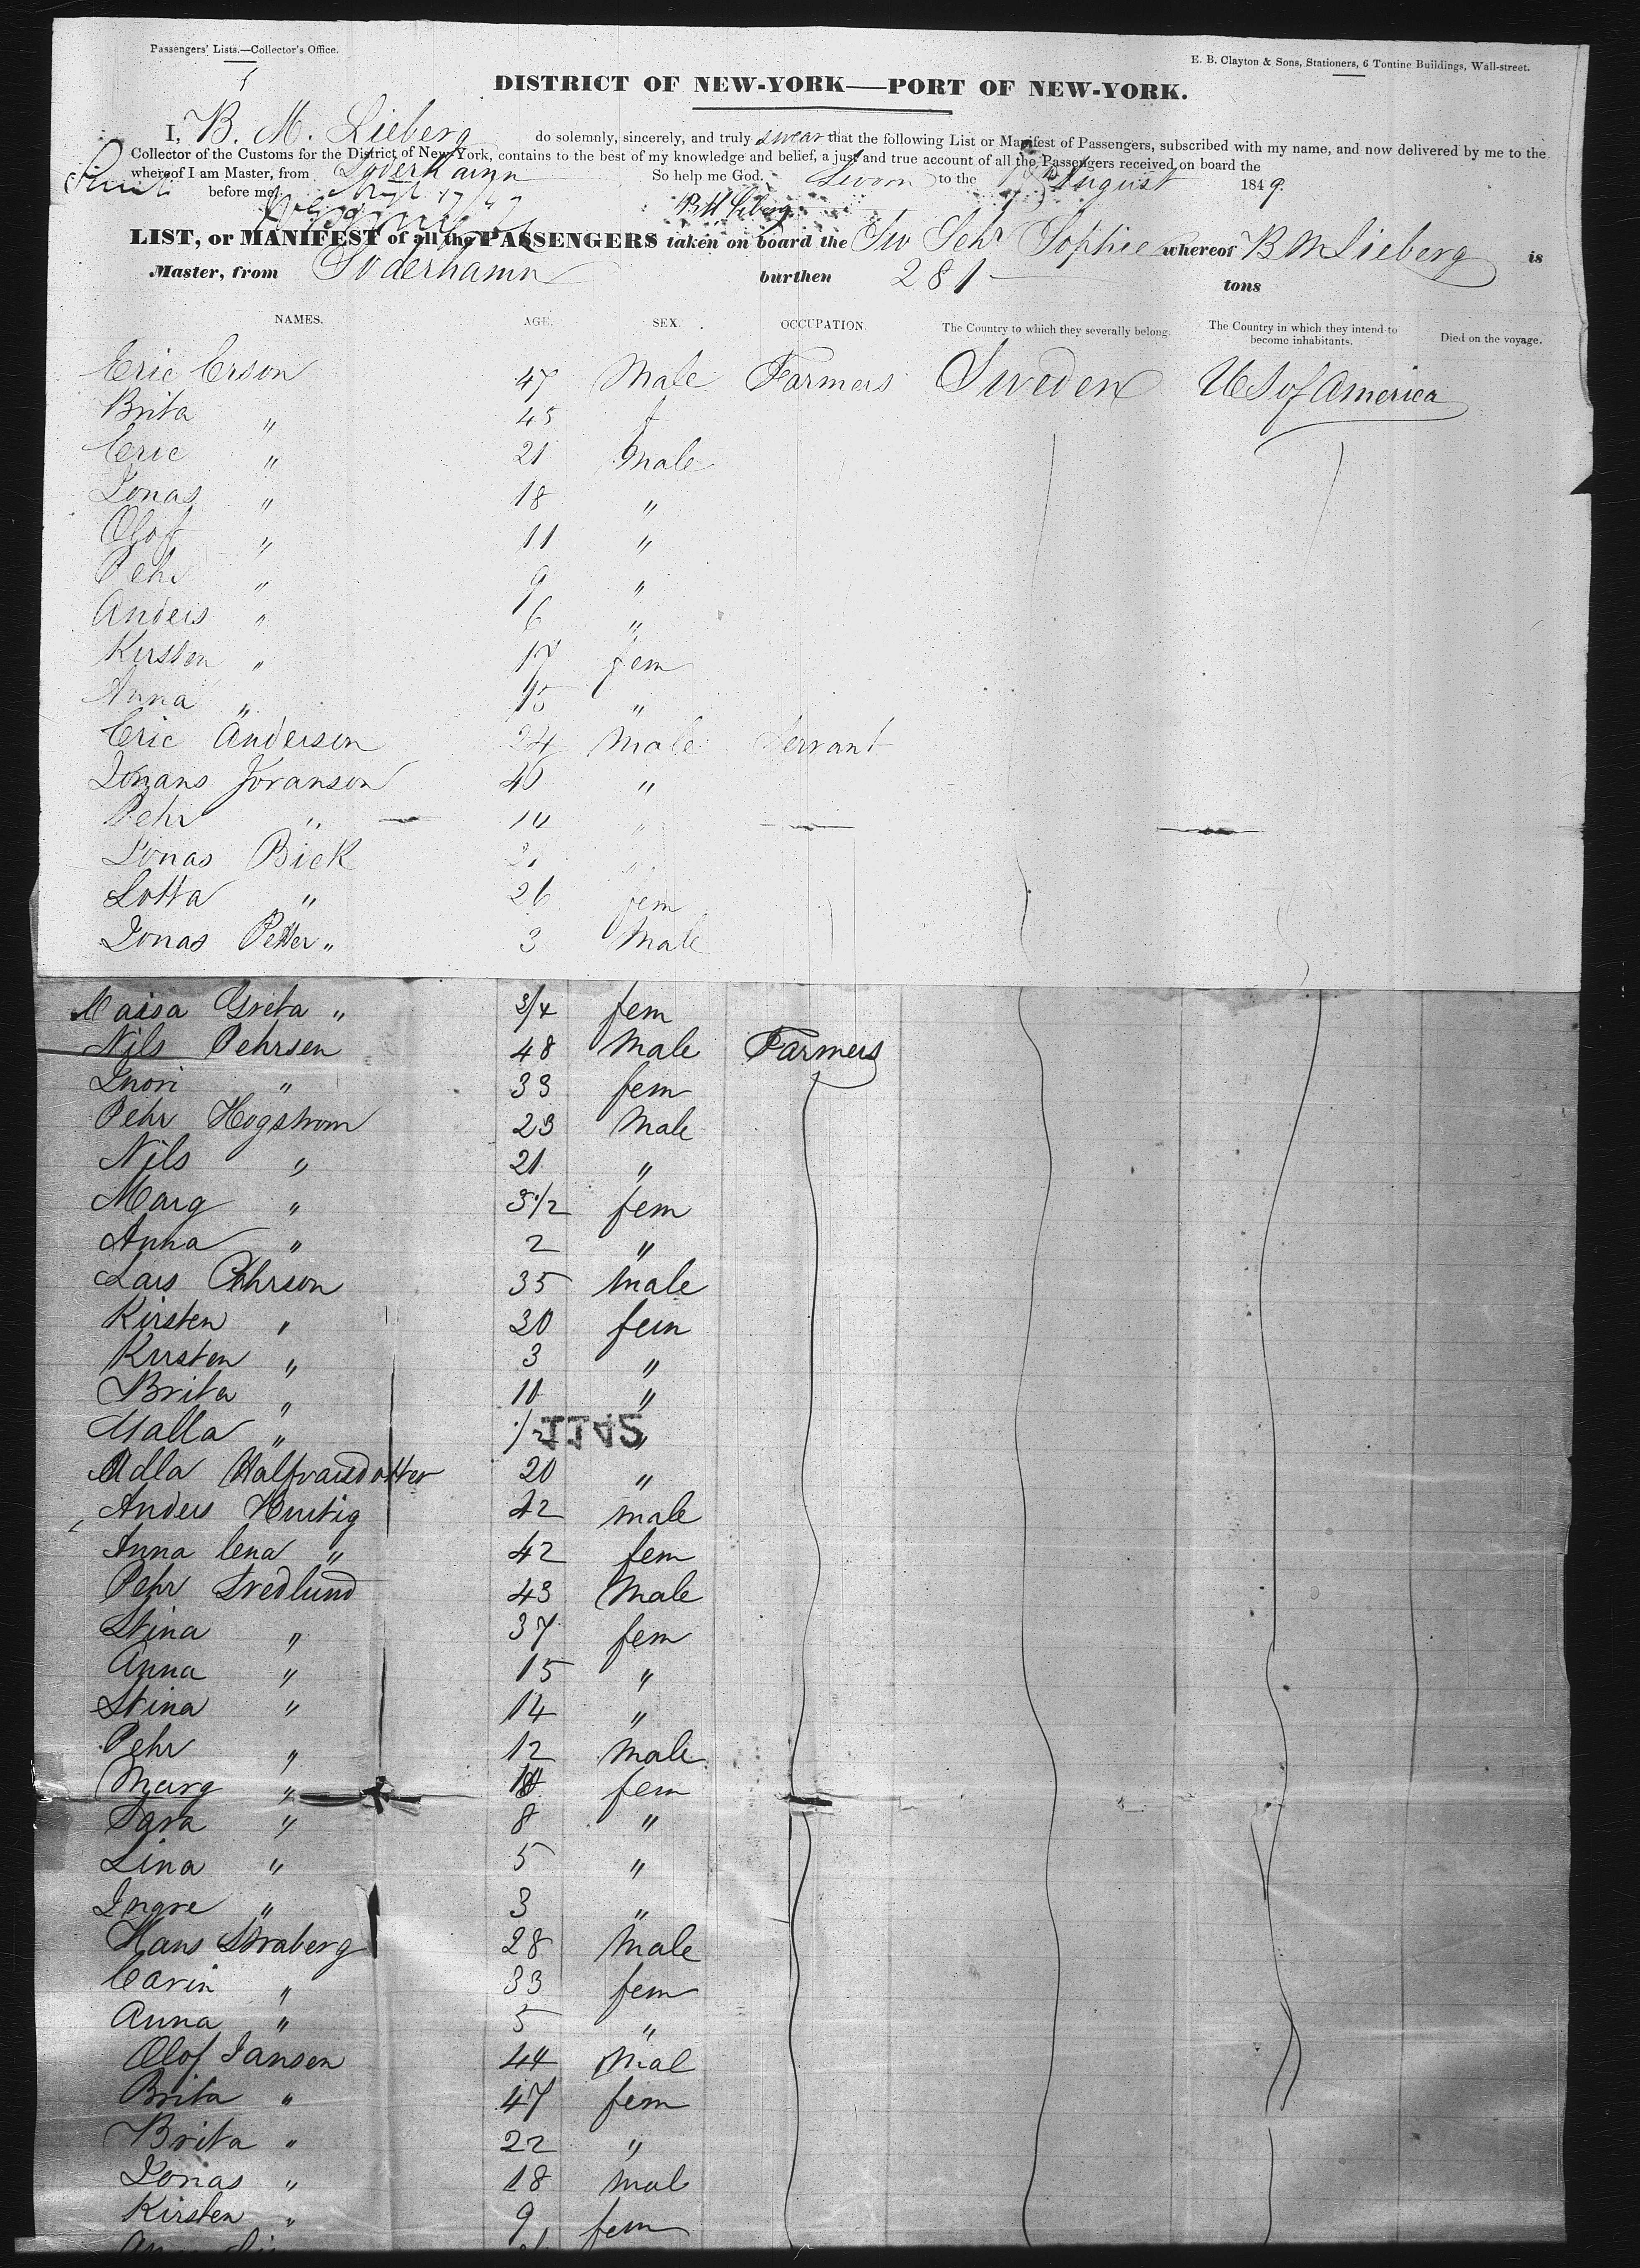 Passengers' Lists.—Collector's Office.
E. B. Clayton & Sons, Stationers, 6 Tontine Buildings, Wall-street.
DISTRICT OF NEW-YORK—PORT OF NEW-YORK.
I, B. M. Lieberg do solemnly, sincerely, and truly swear that the following List or Manifest of Passengers, subscribed with my name, and now delivered by me to the
Collector of the Customs for the District of New-York, contains to the best of my knowledge and belief, a just and true account of all the Passengers received on board the
whereof I am Master, from Soderhamn So help me God. Sworn to the August 1849.
before me
LIST, or MANIFEST of all the PASSENGERS taken on board the Sw Schr Sophie whereof B M Lieberg is
Master, from Soderhamn burthen 281 tons
NAMES. AGE. SEX. OCCUPATION. The Country to which they severally belong. The Country in which they intend to become inhabitants. Died on the voyage.
Eric Erson 47 Male Farmers Sweden US of America
Brita " 45 f
Eric " 21 Male
Jonas " 18 "
Olof " 11 "
Pehr " 9 "
Anders " 6 "
Kirsten " 17 fem
Anna " 15 "
Eric Anderson 24 Male Servant
Jonans Joranson 40 "
Pehr " 14 "
Jonas Bick "
Lotta " 26 fem
Jonas Petter " 3 Male
Caisa Greta " 3/4 fem
Nils Pehrsen 48 Male Farmers
" 33 fem
Pehr Hogstrom 23 Male
Nils " 21 "
Marg " 3 1/2 fem
Anna " 2 "
Lars Pehrson 35 Male
Kirsten " 30 fem
Kirsten " 3 "
Brita " 11 "
Malla " 1/2 "
Adla Halfvarsdotter 20 "
Anders Hurtig 42 male
Anna lena " 42 fem
Pehr Svedlund 43 Male
Stina " 37 fem
Anna " 15 "
Stina " 14 "
Pehr " 12 Male
Marg " fem
Sara " 8 "
Lina " 5 "
Ingre " 3 "
Hans Straberg 28 Male
Carin " 33 fem
Anna " 5 "
Olof Jansen 44 Mal
Brita " 47 fem
Brita " 22 "
Jonas " 18 Mal
Kirsten " 9 fem